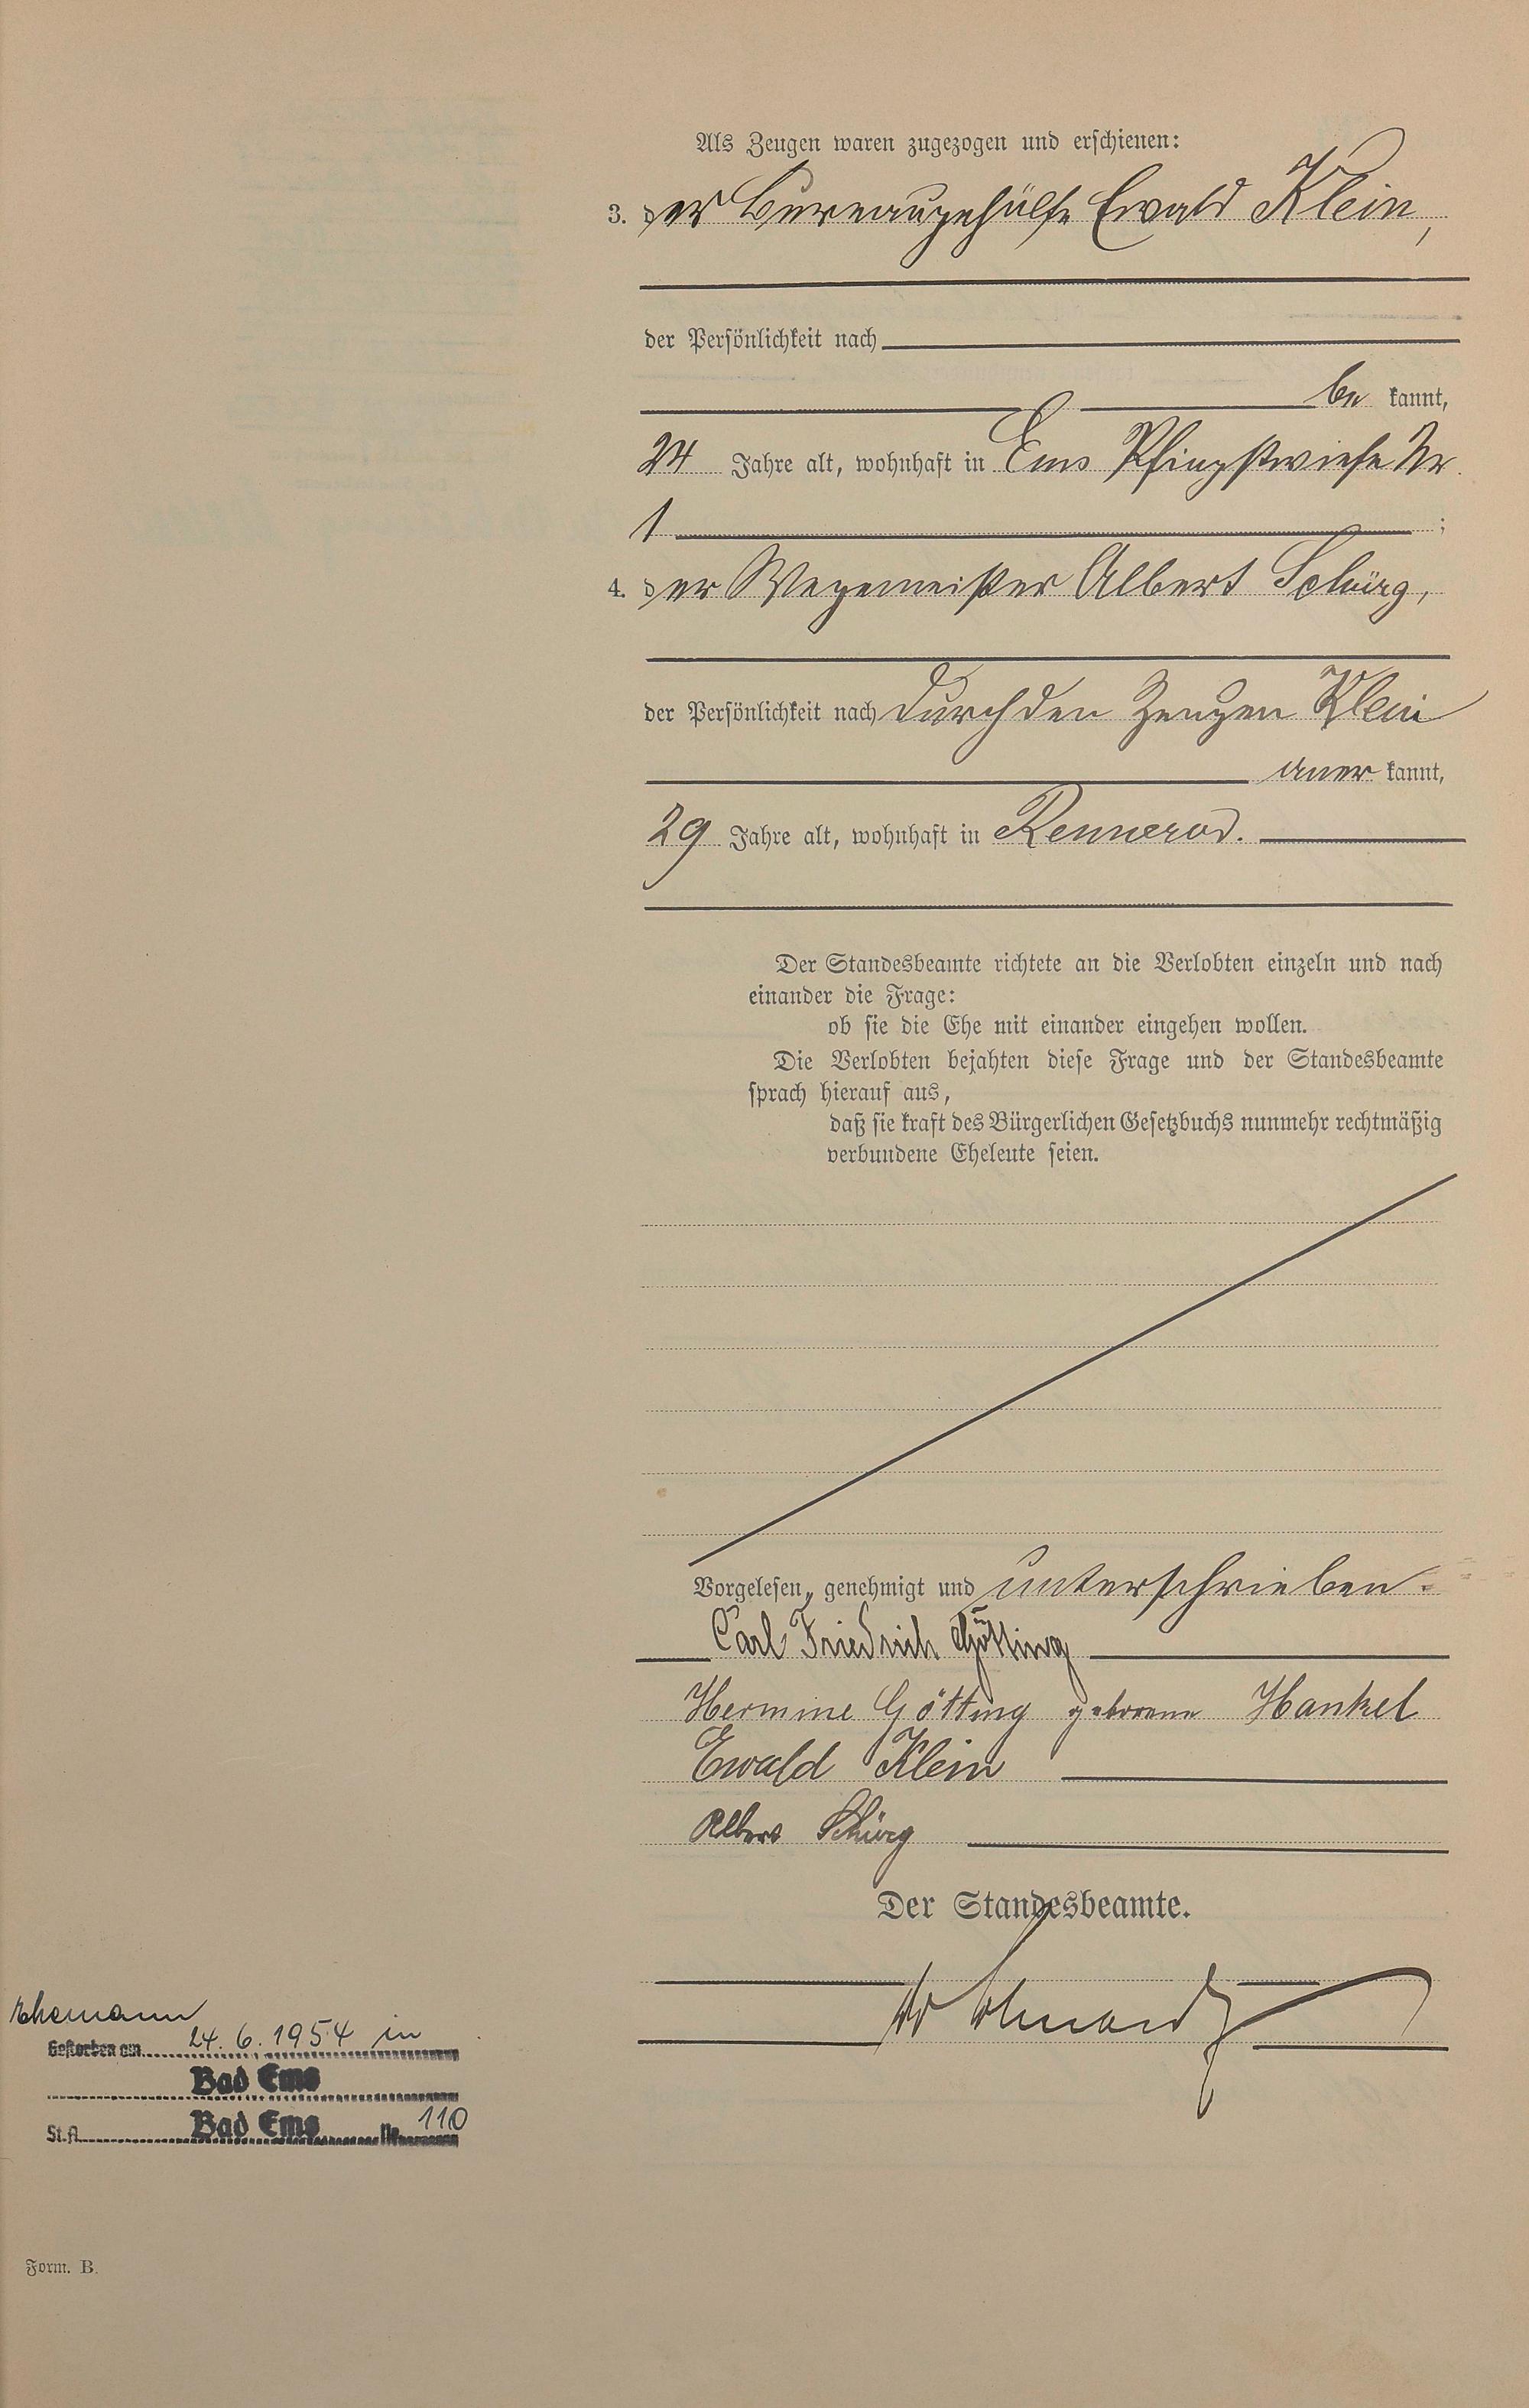 Als Zeugen waren zugezogen und erschienen:
3. der Bureaugehülfe Ewald Klein,
der Persönlichkeit nach
be kannt,
24 Jahre alt, wohnhaft in Ems Pfingstwiese Nr.
1 ;
4. der Wegemeister Albert Schürg,
der Persönlichkeit nach durch den Zeugen Klein
aner kannt,
29 Jahre alt, wohnhaft in Rennerod.
Der Standesbeamte richtete an die Verlobten einzeln und nach
einander die Frage:
ob sie die Ehe mit einander eingehen wollen.
Die Verlobten bejahten diese Frage und der Standesbeamte
sprach hierauf aus,
daß sie kraft des Bürgerlichen Gesetzbuchs nunmehr rechtmäßig
verbundene Eheleute seien.
Vorgelesen, genehmigt und unterschrieben.
Carl Friedrich Götting
Hermine Götting geborene Hankel
Ewald Klein
Albert Schürg
Der Standesbeamte.
Ehemann
Gestorben am 24.6.1954 in
Bad Ems
St.A. Bad Ems Nr. 110
Form. B.